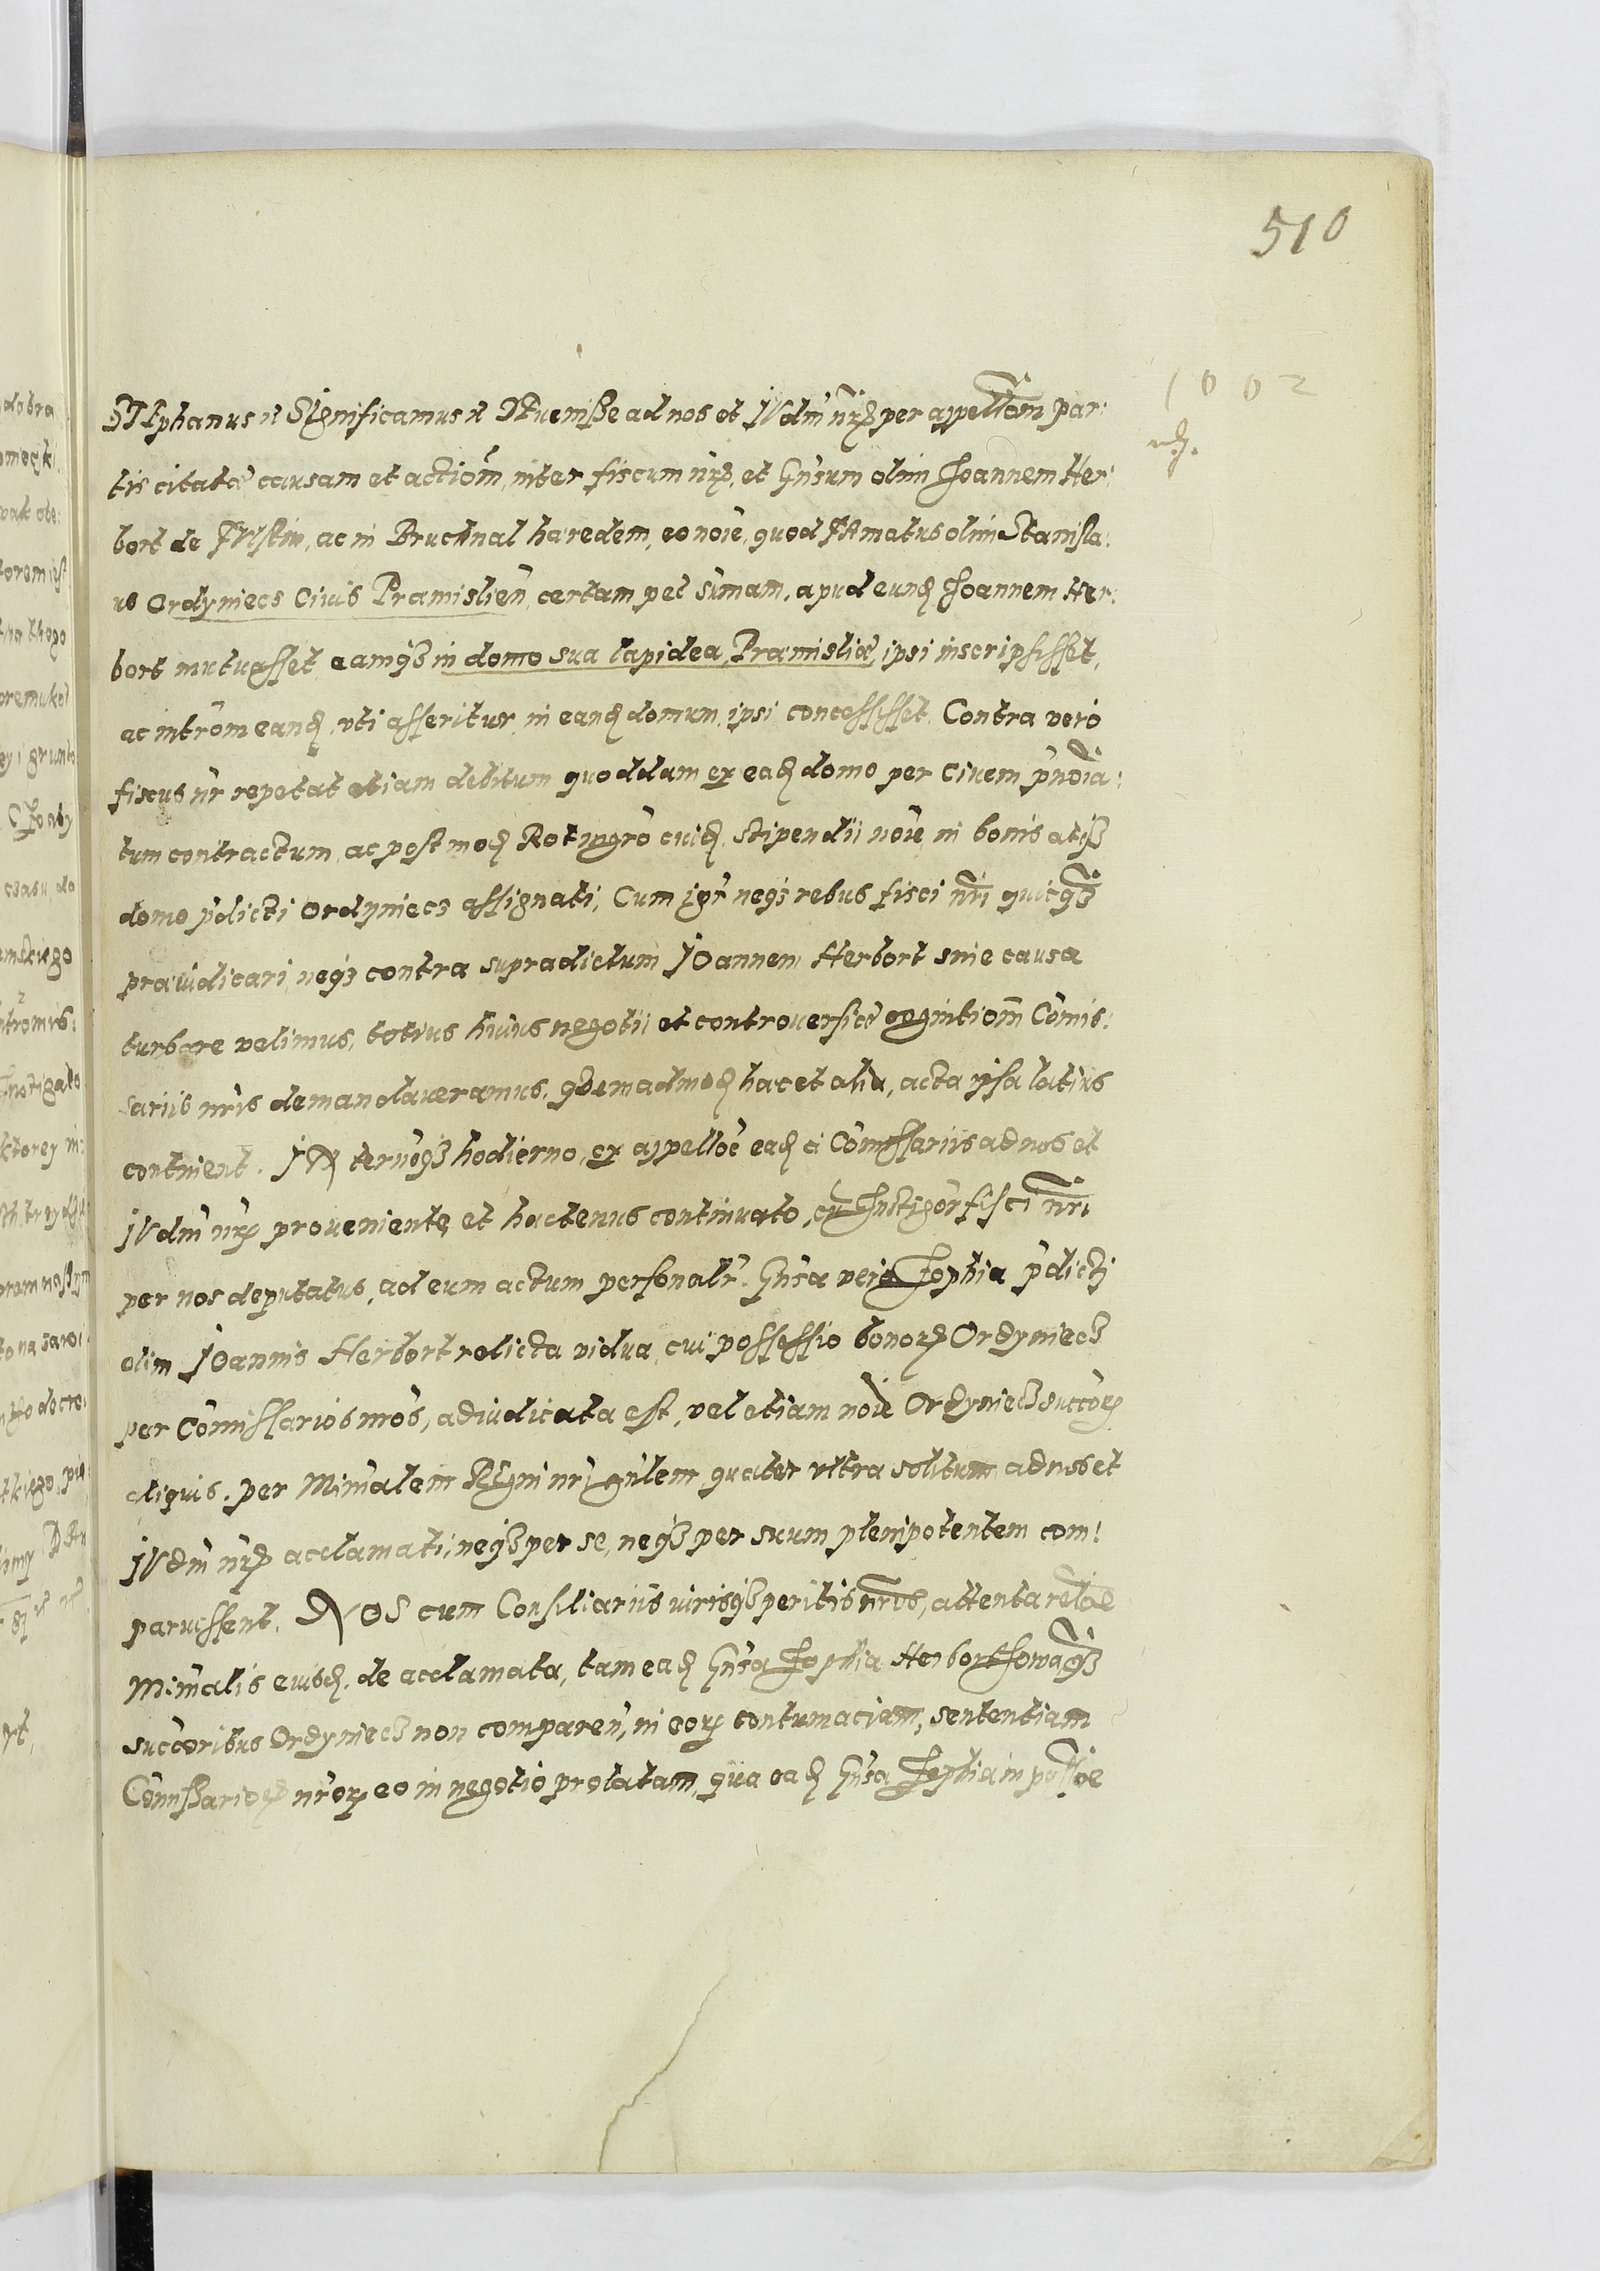 510
1002
STEphanus etc Significamus etc DEueniße ad nos et IVdiū nrm per appellōem par:
tis citatæ causam et actiōm, inter fiscum nrm, et Gnsum olim Joannem Her:
bort de FVlstin, ac in Bruchnal hæredem, eo noīe, quod FAmatus olim Stanisla:
us Ordyniecz Ciuis Præmislien, certam pec sūmam, apud eund Joannem Her:
bort mutuasset, eamqз in domo sua lapidea Præmisliæ, ipsi inscripsisset,
ac intrōm eand, vti asseritur, in eand domum, ipsi concessisset. Contra vero
fiscus nr repetat etiam debitum quoddam ex ead domo per Ciuem pnōia:
tum contractum, ac postmod Rotmgro cuid. stipendii noīe in bonis atqз
domo pdicti Ordyniecz assignati, Cum igr neqз rebus fisci nri quicqз
præiudicari, neqз contra supradictum JOannem Herbort sine causa
turbare velimus, totius huius negotii et controuersiæ cognitiōm Cōmis:
sariis nris demandaueramus, quemadmod hæc et alia, acta ipsa latius
continent. IN ternoqз hodierno, ex appellōe ead a Cōmissariis ad nos et
IVdiū nrm proueniente, et hactenus continuato, cum Instigor fisci nri
per nos deputatus, ad eum actum personalr. Gnsa vero Zophia pdicti
olim JOannis Herbort relicta vidua, cui possessio bonorum Ordyniecz
per Cōmissarios nros, adiudicata est, vel etiam noīe Ordyniecz succorum
aliquis. per Minialem Regni nri gnlem, quater vltra solitum, ad nos et
IVdiū nrm acclamati, neqз per se, neqз per suum plenipotentem com:
paruissent. NOS cum Consiliariis virisqз peritis nris, attenta relōe
Minialis eiusd. de acclamata, tam ead Gnsa Zophia Herbortowa, qз
succoribus Ordyniecz non comparen, in eorum contumaciam, sententiam
Cōmissariorum nrorum eo in negotio prolatam, qua ead Gnsa Zophia in possōe